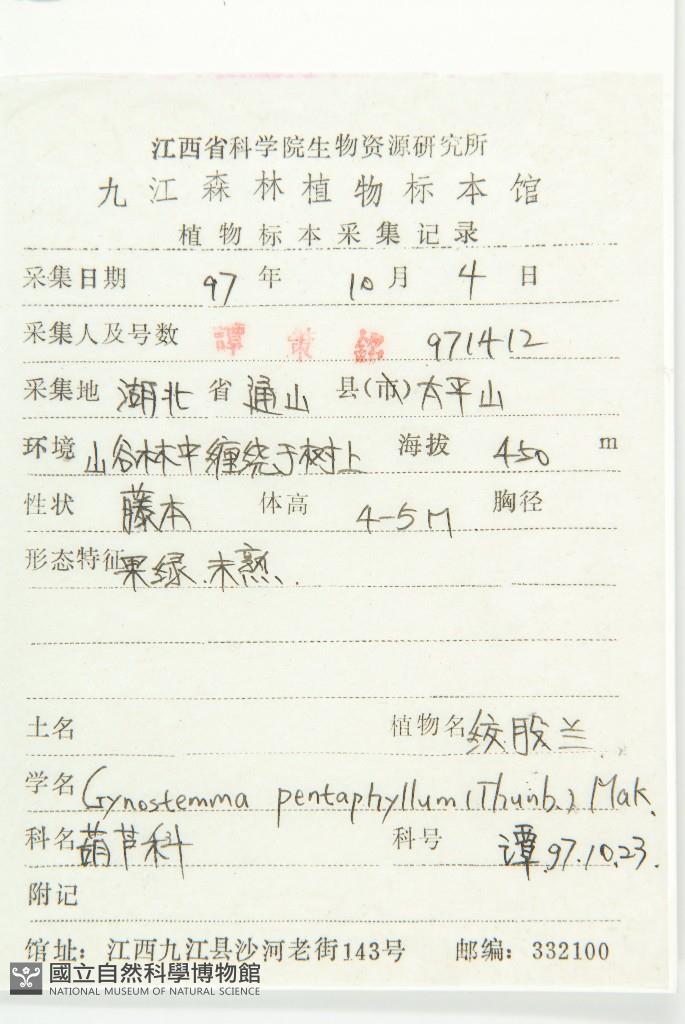 江西省科学院生物资源研究所
九江森林植物标本馆
植物标本采集记录
采集日期 97 年 10 月 4 日
采集人及号数 譚策銘 971412
采集地 湖北 省 通山 县(市) 太平山
环境 山谷林中缠绕于树上 海拔 450 m
性状 藤本 体高 4-5M 胸径
形态特征 果绿.未熟.
土名 植物名 绞股兰
学名 Gynostemma pentaphyllum (Thunb.) Mak.
科名 葫芦科 科号 谭.97.10.23.
附记
馆址：江西九江县沙河老街143号 邮编：332100
國立自然科學博物館
NATIONAL MUSEUM OF NATURAL SCIENCE